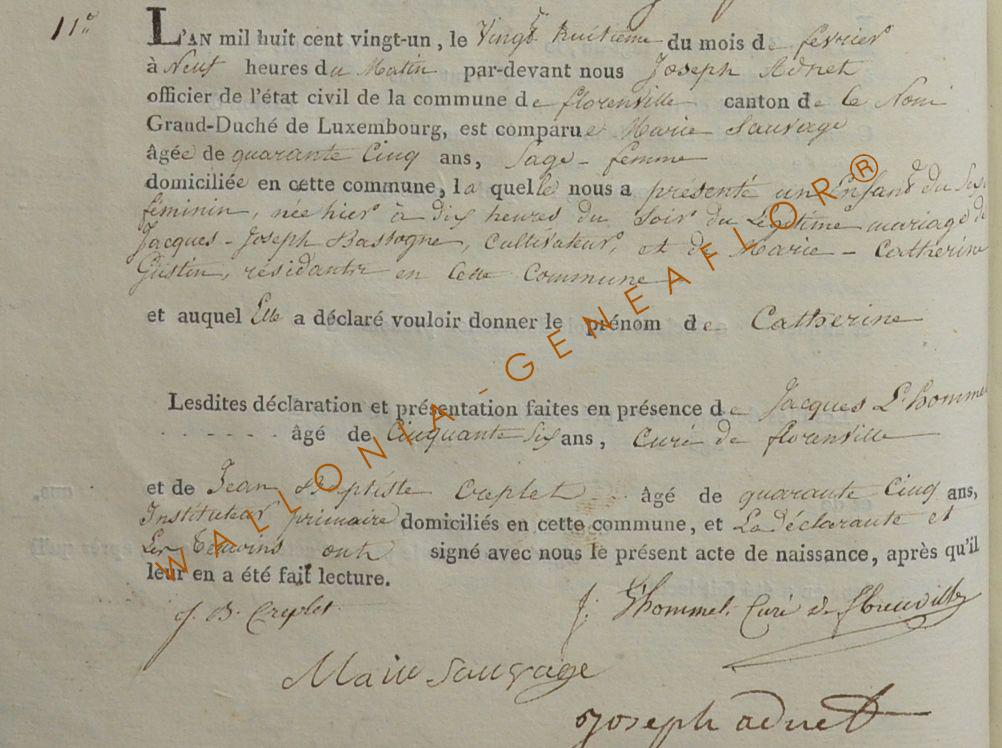 11e
L'AN mil huit cent vingt-un, le Vingt huitieme du mois de fevrier
à Neuf heures du Matin par-devant nous Joseph Adnet
officier de l'état civil de la commune de florenville canton de ce Nom
Grand-Duché de Luxembourg, est comparue Marie Sauvage
âgée de quarante Cinq ans, Sage-femme
domiciliée en cette commune, la quelle nous a présenté un Enfant du Sexe
féminin, née hier à dix heures du Soir du Légitime mariage de
Jacques-Joseph Bastogne, Cultivateur, et de Marie-Catherine
Gustin, résidants en Cette Commune
et auquel Elle a déclaré vouloir donner le prénom de Catherine
Lesdites déclaration et présentation faites en présence de Jacques L'hommel
âgé de Cinquante Six ans, Curé de florenville
et de Jean Baptiste Creplet âgé de quarante Cinq ans,
Instituteur primaire domiciliés en cette commune, et La déclarante et
Les temoins ont signé avec nous le présent acte de naissance, après qu'il
leur en a été fait lecture.
J. B. Creplet J. L'hommel Curé de florenville
Marie Sauvage
Joseph adnet
WALLONIA-GENEAFLOR®